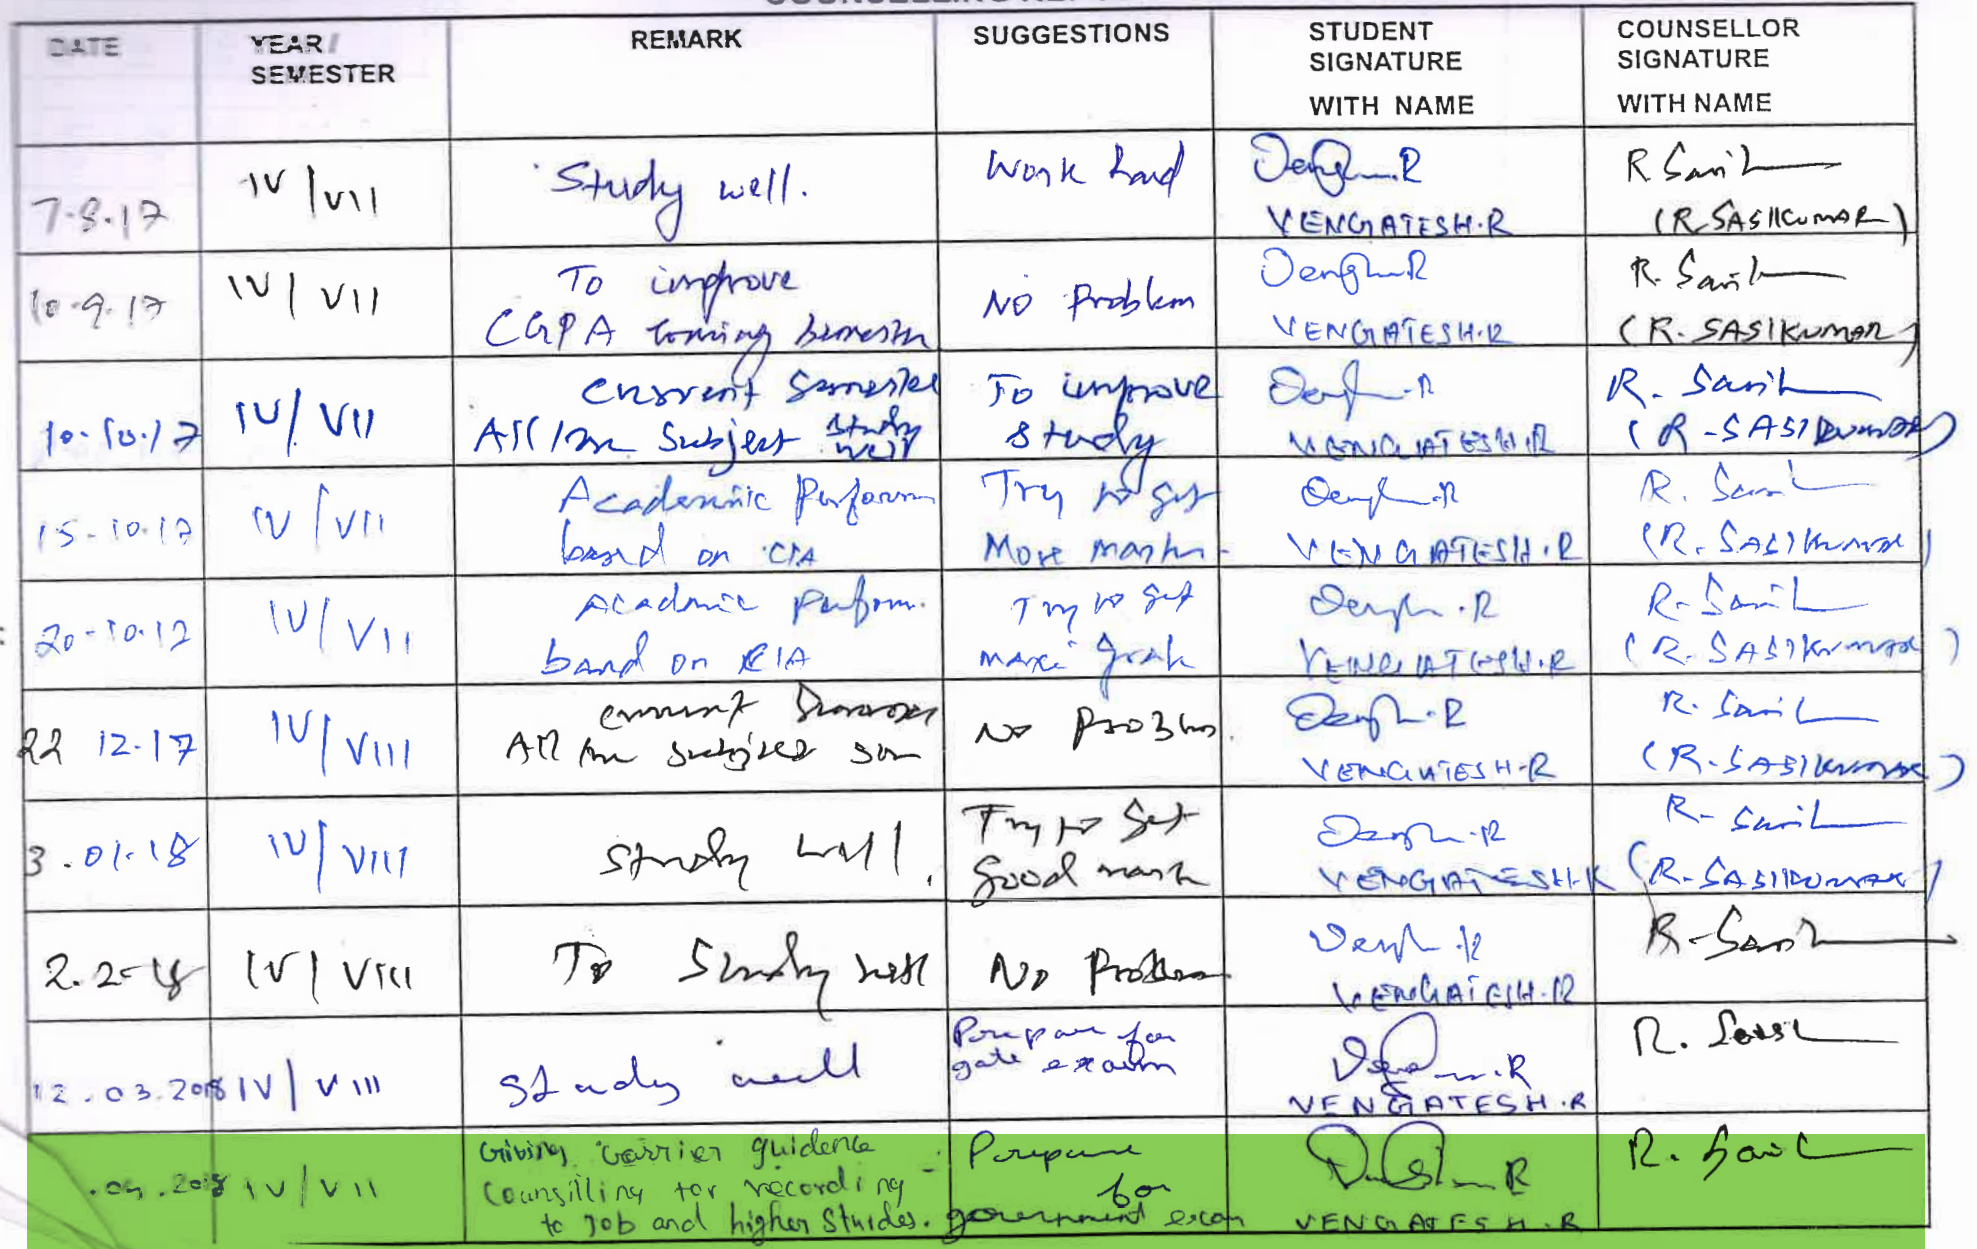 DATE
YEAR/
SEMESTER
REMARK
SUGGESTIONS
STUDENT
SIGNATURE
WITH NAME
COUNSELLOR
SIGNATURE
WITH NAME
7.8.17
IV/VII
Study well.
Work hard
VENGATESH.R
R Sasik
(R.SASIKUMAR)
10.9.17
IV/VII
To improve
CGPA coming Semester
NO Problem
VENGATESH.R
R. Sasik
(R. SASIKUMAR)
10.10.17
IV/VII
Current Semester
All the Subject Study
well
To improve
study
VENGATESH.R
R. Sasik
(R-SASIKUMAR)
15-10-17
IV/VII
Academic Perform
based on CIA
Try to get
More marks
VENGATESH.R
R. Sasik
(R. SASIKUMAR)
20-10-17
IV/VII
Academic Perform.
based on CIA
Try to get
VENGATESH.R
R-Sasik
(R. SASIKUMAR)
22 12-17
IV/VIII
current Semester
All the subject
No Problem.
VENGATESH-R
R. Sasik
(R.SASIKUMAR)
3.01.18
IV/VIII
study well.
Try to get
Good mark
VENGATESH.R
R- Sasik
(R-SASIKUMAR)
2.2-18
IV/VIII
To Study well
No Problem
VENGATESH.R
R-Sasik
12.03.2018
IV/VIII
Study well
Prepare for
gate exam
VENGATESH.R
R. Sasik
.04.2018
IV/VII
Giving carrier guidence
Counsilling for recording
to Job and higher Studes.
Prepare
for
government exam
VENGATESH.R
R. Sasik